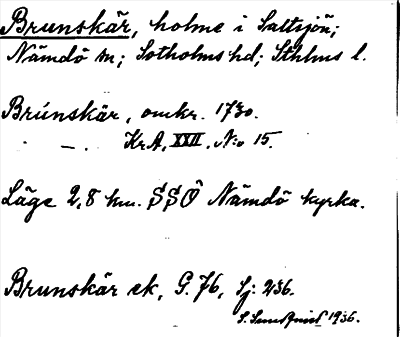 Brunskär, holme i Saltsjön;
Nämdö sn; Sotholms hd; Sthlms l.
Brunskär, omkr. 1730.
- — . Kr.A, XXII, N:o 15.
Läge 2,8 km. SSÖ Nämdö kyrka.
Brunskär ek, G. 76, Sj: 236.
1936.